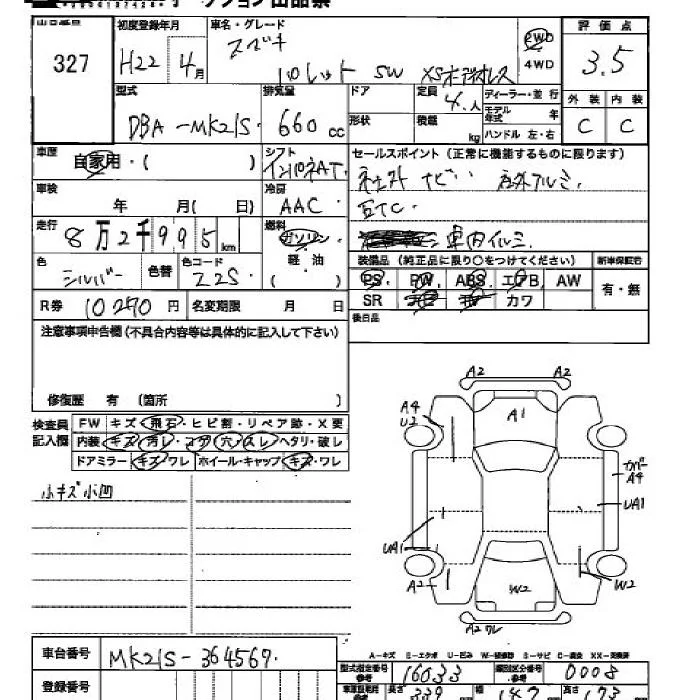 出品番号 初度登録年月 車名・グレード 評価点
327 H22年 4月 スズキ 2WD 4WD 3.5
パレット SW XSオーディオレス
外装 内装
C C
型式 排気量 ドア 定員 4.人 ディーラー・並行
DBA-MK21S. 660cc 形状 積載 kg モデル年式 年
ハンドル 左・右
車歴 自家用・( ) シフト インパネAT. セールスポイント(正常に機能するものに限ります)
社外ナビ. 社外アルミ.
車検 年 月( 日) 冷房 AAC.
ETC.
走行 8万2千995km 燃料 ガソリン・軽油( )
車内イルミ.
装備品(純正品に限り○をつけてください) 新車保証有
色 シルバー 色替 色コード Z2S.
PS PW ABS エアB AW 有・無
SR カワ
R券 10290円 名変期限 月 日
後日品
注意事項申告欄(不具合内容等は具体的に記入して下さい)
修復歴 有(箇所 )
検査員記入欄 FW キズ・飛石・ヒビ割・リペア跡・X要
内装 キズ・汚レ・コゲ・穴・スレ・ヘタリ・破レ
ドアミラー キズ・ワレ ホイール・キャップ キズ・ワレ
小キズ小凹
A2
A4
U2
A1
A2
カバー
A4
UA1
UA1
A2
W2
W2
A2ワレ
A-キズ E-エクボ U-凹み W-補修跡 S-サビ C-腐食 XX-交換済
車台番号 MK21S-364569.
型式指定番号 参考 16033 類別区分番号 参考 0008
登録番号
長さ 339 幅 147